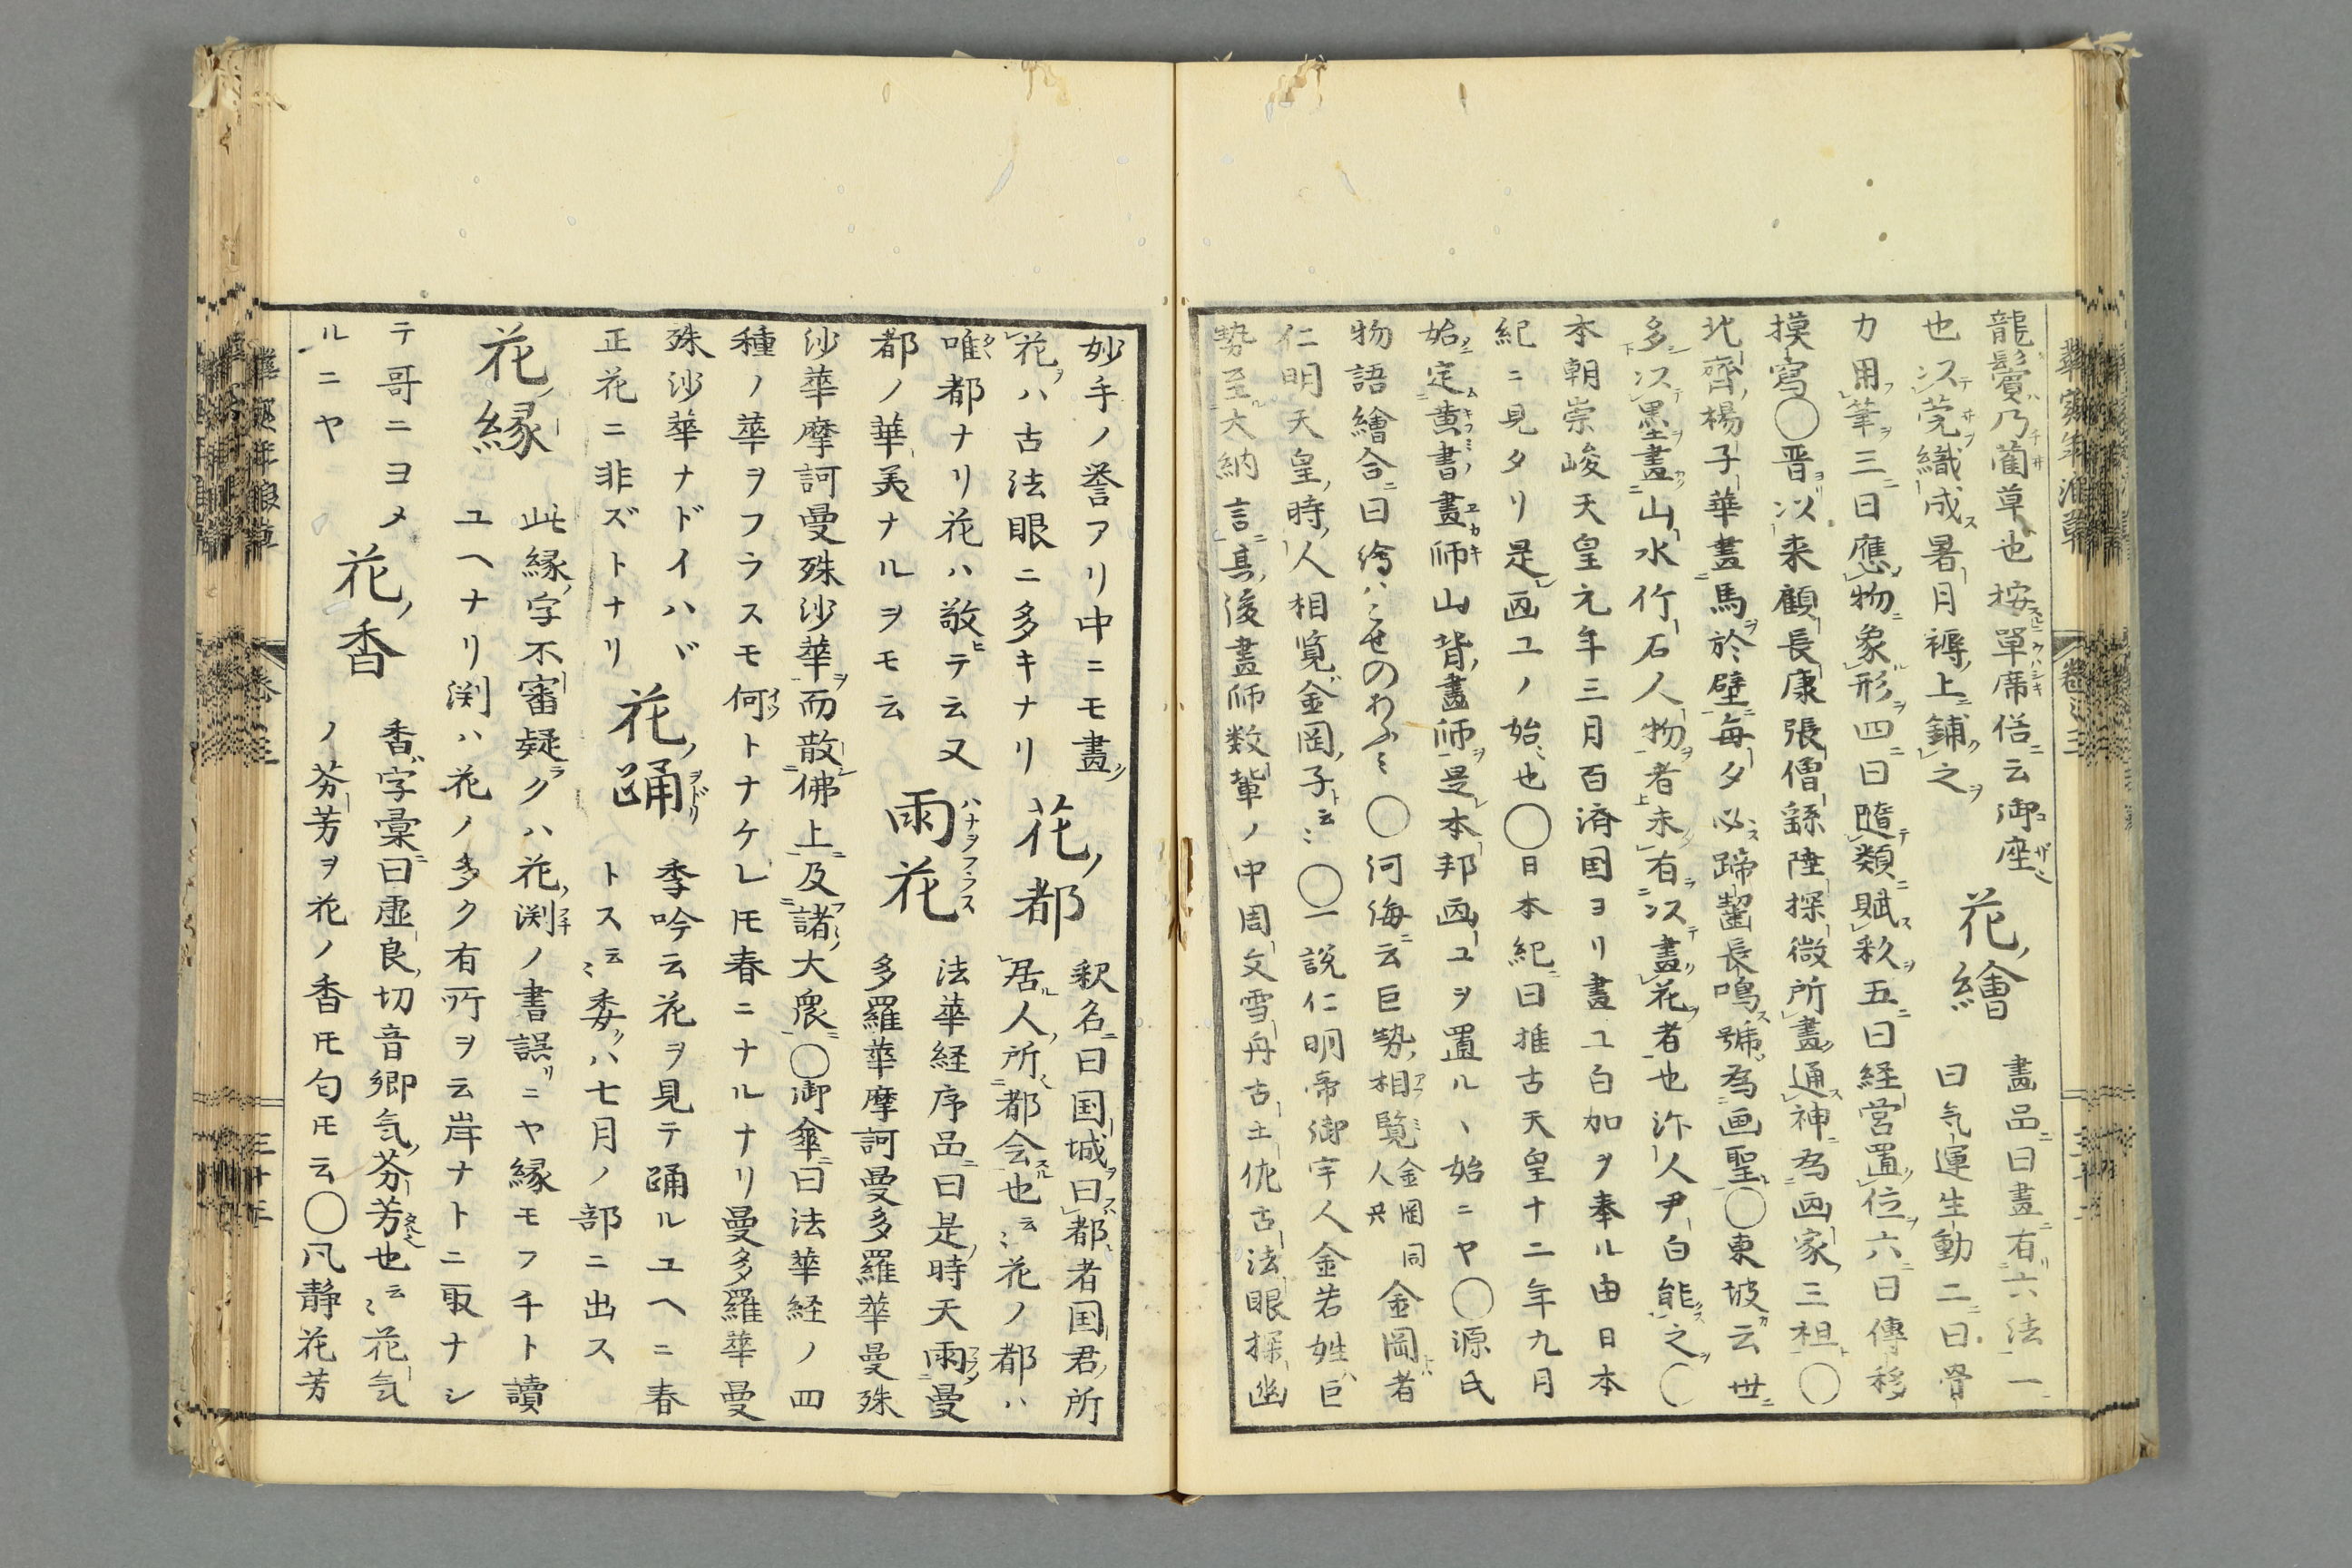 龍鬢乃藺草也按單席俗云御座
花ノ繪
畫品曰畫有六法一
曰气運生動二曰骨
也以莞織成暑月褥上鋪之
力用筆三曰應物象形四曰隨類賦釆五曰経営置位六曰傳移
摸寫○晋以来顧長康張僧繇陸探微所畫通神為画家三祖○
北齊楊子華畫馬於壁毎夕必蹄齧長鳴號為画聖○東坡云世
多以墨畫山水竹石人物者未有以畫花者也汴人尹白能之○
本朝崇峻天皇元年三月百済国ヨリ畫工白加ヲ奉ル由日本
紀ニ見タリ是画工ノ始也○日本紀曰推古天皇十二年九月
始定黄書畫師山背畫師是本邦画工ヲ置ル丶始ニヤ○源氏
物語繪合曰繪ハこせのあふミ○河海云巨勢相覧金岡同人欤金岡者
仁明天皇時人相覧金岡子云々○一説仁明帝御宇人金若姓巨
勢至大納言其後畫師数輩ノ中周文雪舟古土佐古法眼探幽
妙手ノ誉アリ中ニモ畫
花ハ古法眼ニ多キナリ
花ノ都
釈名曰国城曰都者国君所
居人所都会也云々花ノ都ハ
唯都ナリ花ハ敬テ云又
都ノ華美ナルヲモ云
雨花
ハナヲフラス
法華経序品曰是時天雨曼
多羅華摩訶曼多羅華曼殊
沙華摩訶曼殊沙華而散佛上及諸大衆○御傘曰法華経ノ四
種ノ華ヲフラスモ何トナケレ𪜈春ニナルナリ曼多羅華曼
殊沙華ナドイハヾ
正花ニ非ズトナリ
花ノ踊
ヲドリ
季吟云花ヲ見テ踊ルユヘニ春
トス云々委クハ七月ノ部ニ出ス
花ノ縁
此縁ノ字不審疑ラクハ花ノ渕ノ書誤リニヤ縁モフチト讀
ユヘナリ渕ハ花ノ多ク有所ヲ云岸ナトニ取ナシ
テ哥ニヨメ
ルニヤ
花ノ香
香字彙曰虚良切音卿气芬芳也云々花气
ノ芬芳ヲ花ノ香𪜈匂𪜈云○凡静花芳
卷之三
三十三